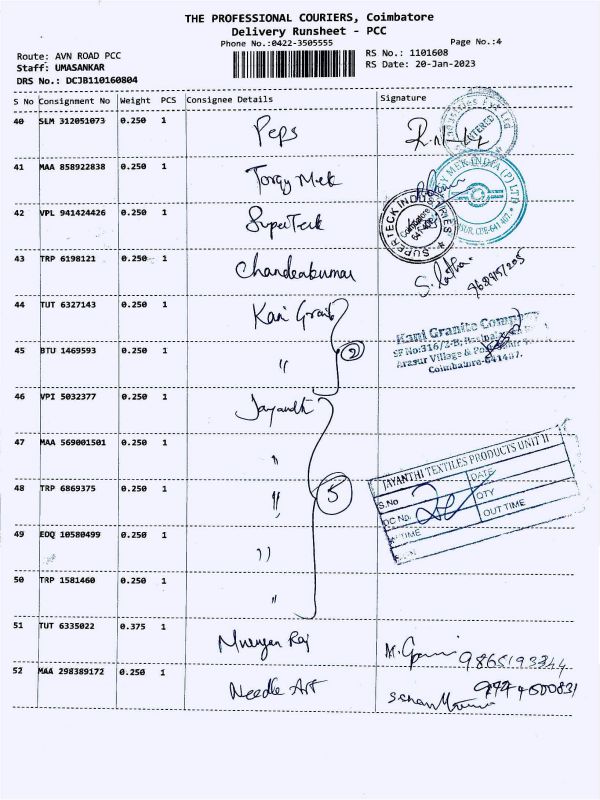 THE PROFESSIONAL COURIERS, Coimbatore
Delivery Runsheet - PCC
Phone No.:0422-3505555
Page No.:4
Route: AVN ROAD PCC
RS No.: 1101608
Staff: UMASANKAR
RS Date: 20-Jan-2023
DRS No.: DCJB110160804
S No Consignment No Weight PCS Consignee Details Signature
40 SLM 312051073 0.250 1 Peps
41 MAA 858922838 0.250 1 Torqy Mek
MEK INDIA (P) LTD
42 VPL 941424426 0.250 1 SuperTeck
SUPERTECK INDUSTRIES
Coimbatore
43 TRP 6198121 0.250 1 Chandrakumar
44 TUT 6327143 0.250 1 Kani Granit
Kani Granite
SF No:316/2-B,
Arasur Village &
Coimbatore-641407.
45 BTU 1469593 0.250 1 " 2
46 VPI 5032377 0.250 1 Jayandti
47 MAA 569001501 0.250 1 "
JAYANTHI TEXTILES PRODUCTS UNIT II
S.No DATE
DC No. QTY
IN TIME OUT TIME
48 TRP 6869375 0.250 1 " 5
49 EDQ 10580499 0.250 1 "
50 TRP 1581460 0.250 1 "
51 TUT 6335022 0.375 1 Murugan Raj 9865193344
52 MAA 298389172 0.250 1 Needle Art